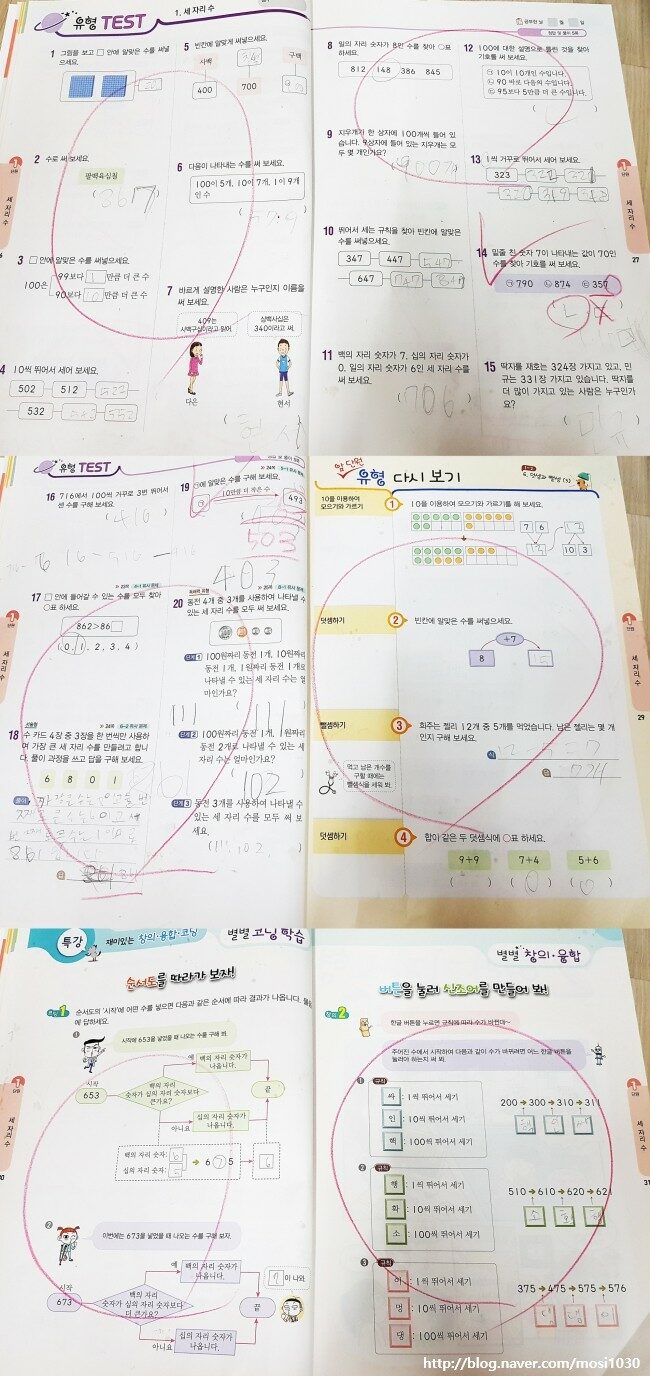 유형 TEST
1. 세 자리 수
1 그림을 보고 □ 안에 알맞은 수를 써넣으세요.
5 빈칸에 알맞게 써넣으세요.
사백
구백
400
700
2 수로 써 보세요.
팔백육십칠
6 다음이 나타내는 수를 써 보세요.
100이 5개, 10이 7개, 1이 9개인 수
3 □ 안에 알맞은 수를 써넣으세요.
100은
99보다 1 만큼 더 큰 수
90보다 10 만큼 더 큰 수
7 바르게 설명한 사람은 누구인지 이름을 써 보세요.
409는 사백구십이라고 읽어.
삼백사십은 340이라고 써.
다은
현서
4 10씩 뛰어서 세어 보세요.
502
512
522
532
8 일의 자리 숫자가 8인 수를 찾아 ○표 하세요.
812 148 386 845
9 지우개가 한 상자에 100개씩 들어 있습니다. 9상자에 들어 있는 지우개는 모두 몇 개인가요?
10 뛰어서 세는 규칙을 찾아 빈칸에 알맞은 수를 써넣으세요.
347
447
547
647
747
847
11 백의 자리 숫자가 7, 십의 자리 숫자가 0, 일의 자리 숫자가 6인 세 자리 수를 써 보세요.
706
12 100에 대한 설명으로 틀린 것을 찾아 기호를 써 보세요.
㉠ 10이 10개인 수입니다.
㉡ 90 바로 다음의 수입니다.
㉢ 95보다 5만큼 더 큰 수입니다.
13 1씩 거꾸로 뛰어서 세어 보세요.
323
322
321
320
319
318
14 밑줄 친 숫자 7이 나타내는 값이 70인 수를 찾아 기호를 써 보세요.
㉠ 790 ㉡ 874 ㉢ 357
15 딱지를 재호는 324장 가지고 있고, 민규는 331장 가지고 있습니다. 딱지를 더 많이 가지고 있는 사람은 누구인가요?
1
단원
세 자리 수
27
유형 TEST
16 716에서 100씩 거꾸로 3번 뛰어서 센 수를 구해 보세요.
416
17 □ 안에 들어갈 수 있는 수를 모두 찾아 ○표 하세요.
862>86□
(0, 1, 2, 3, 4)
18 수 카드 4장 중 3장을 한 번씩만 사용하여 가장 큰 세 자리 수를 만들려고 합니다. 풀이 과정을 쓰고 답을 구해 보세요.
6 8 0 1
풀이
답
19 ㉠에 알맞은 수를 구해 보세요.
10만큼 더 작은 수
493
503
403
20 동전 4개 중 3개를 사용하여 나타낼 수 있는 세 자리 수를 모두 써 보세요.
단계 1 100원짜리 동전 1개, 10원짜리 동전 1개, 1원짜리 동전 1개로 나타낼 수 있는 세 자리 수는 얼마인가요?
111
단계 2 100원짜리 동전 1개, 1원짜리 동전 2개로 나타낼 수 있는 세 자리 수는 얼마인가요?
102
단계 3 동전 3개를 사용하여 나타낼 수 있는 세 자리 수를 모두 써 보세요.
111, 102
앞 단원 유형 다시 보기
10을 이용하여 모으기와 가르기
1 10을 이용하여 모으기와 가르기를 해 보세요.
7 6
13
13
10 3
덧셈하기
2 빈칸에 알맞은 수를 써넣으세요.
+7
8
15
뺄셈하기
3 화주는 젤리 12개 중 5개를 먹었습니다. 남은 젤리는 몇 개인지 구해 보세요.
식
답
먹고 남은 개수를 구할 때에는 뺄셈식을 세워 봐.
덧셈하기
4 합이 같은 두 덧셈식에 ○표 하세요.
9+9
7+4
5+6
1
단원
세 자리 수
29
특강
재미있는 창의·융합·코딩
별별 코딩 학습
순서도를 따라가 보자!
1 순서도의 '시작'에 어떤 수를 넣으면 다음과 같은 순서에 따라 결과가 나옵니다. 물음에 답하세요.
❶
시작에 653을 넣었을 때 나오는 수를 구해 봐.
시작
653
백의 자리 숫자가 십의 자리 숫자보다 큰가요?
예
백의 자리 숫자가 나옵니다.
아니요
십의 자리 숫자가 나옵니다.
끝
백의 자리 숫자: 6
십의 자리 숫자: 5
6
❷
이번에는 673을 넣었을 때 나오는 수를 구해 보자.
시작
673
백의 자리 숫자가 십의 자리 숫자보다 더 큰가요?
예
백의 자리 숫자가 나옵니다.
아니요
십의 자리 숫자가 나옵니다.
끝
7이 나와
별별 창의·융합
버튼을 눌러 신조어를 만들어 봐!
2
한글 버튼을 누르면 규칙에 따라 수가 바뀐대~
주어진 수에서 시작하여 다음과 같이 수가 바뀌려면 어느 한글 버튼을 눌러야 하는지 써 봐.
❶ 규칙
싸 : 1씩 뛰어서 세기
인 : 10씩 뛰어서 세기
핵 : 100씩 뛰어서 세기
200 → 300 → 310 → 311
핵 인 싸
❷ 규칙
행 : 1씩 뛰어서 세기
확 : 10씩 뛰어서 세기
소 : 100씩 뛰어서 세기
510 → 610 → 620 → 621
소 확 행
❸ 규칙
이 : 1씩 뛰어서 세기
멍 : 10씩 뛰어서 세기
댕 : 100씩 뛰어서 세기
375 → 475 → 575 → 576
댕 댕 이
1
단원
세 자리 수
31
http://blog.naver.com/mosi1030